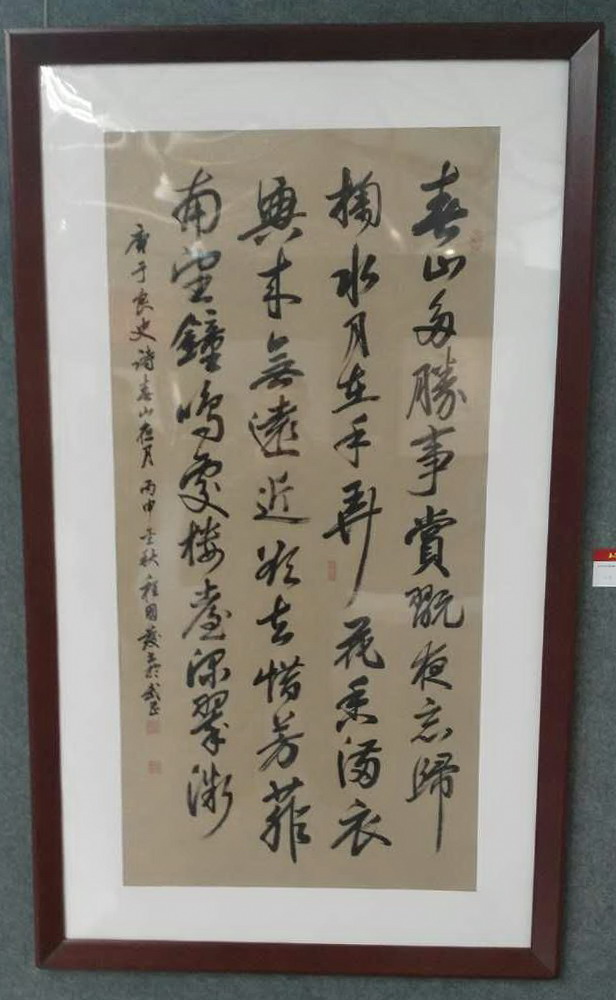 春山多勝事賞翫夜忘歸
掬水月在手弄花香滿衣
興來無遠近欲去惜芳菲
南望鐘鳴處樓臺深翠微
唐于良史詩春山夜月 丙申 秋 程國